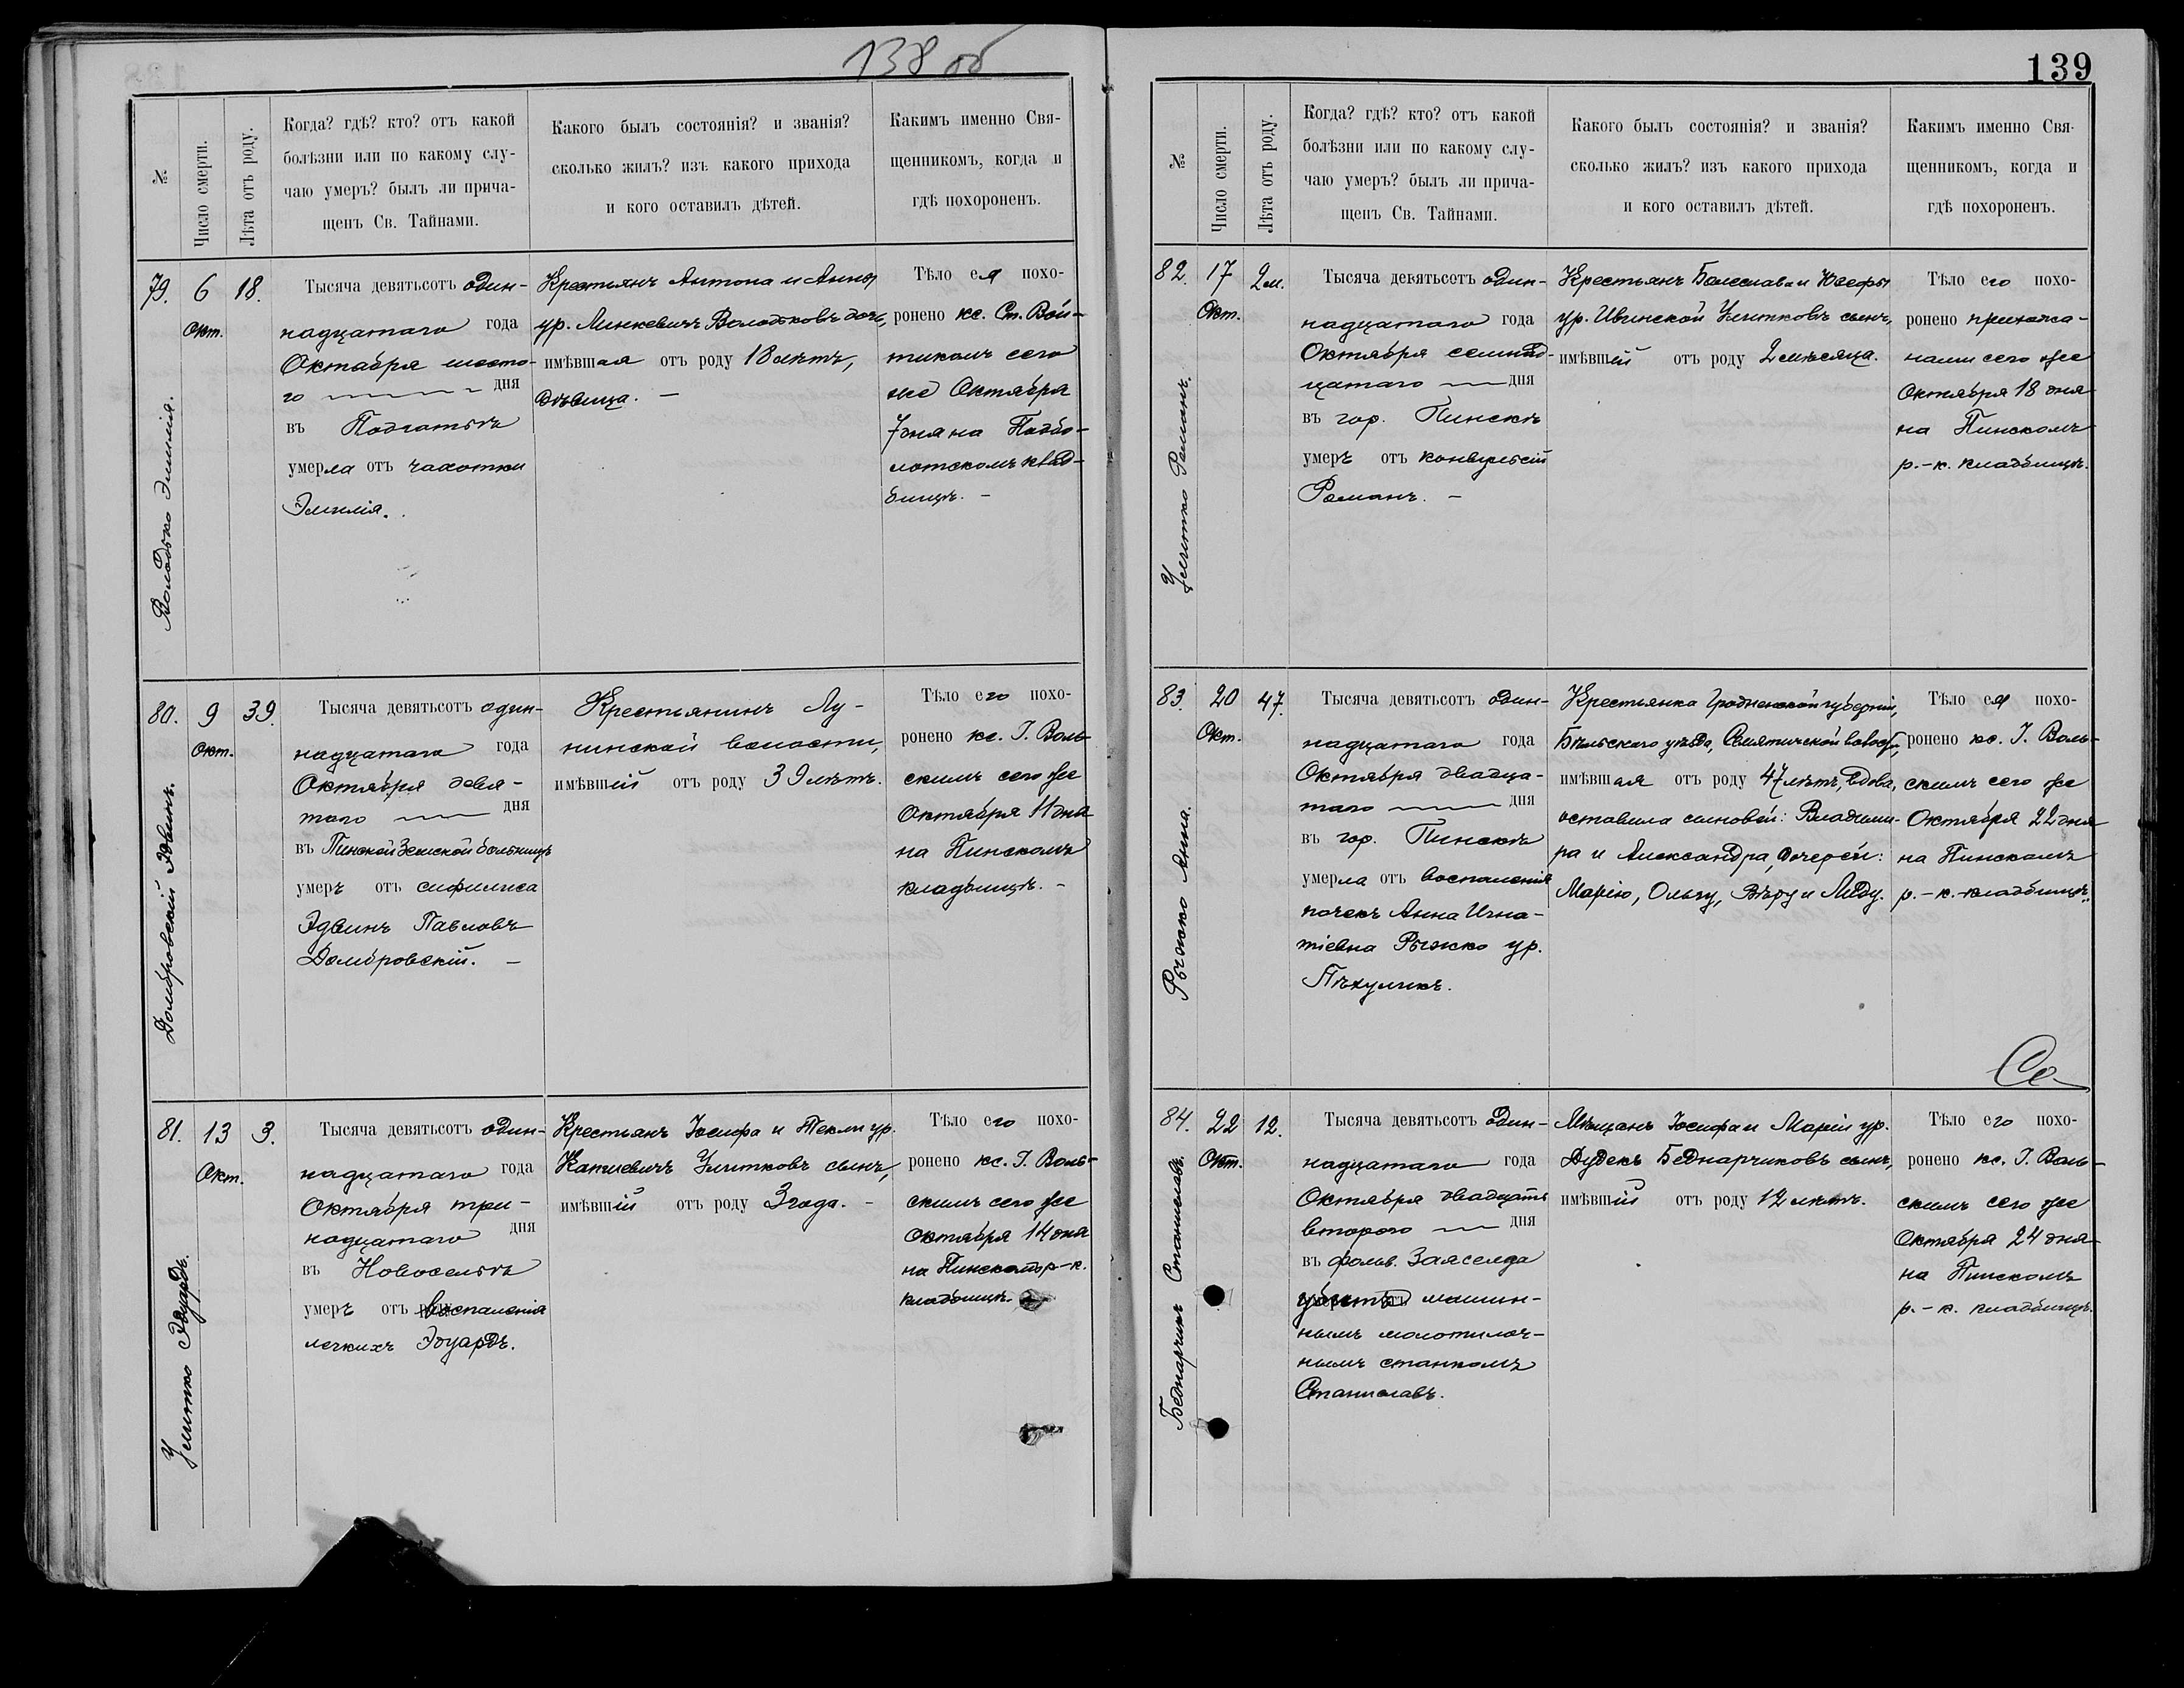 138 об
№
Число смерти.
Лѣта отъ роду.
Когда? гдѣ? кто? отъ какой
болѣзни или по какому слу-
чаю умеръ? былъ ли прича-
щенъ Св. Тайнами.
Какого былъ состоянія? и званія?
сколько жилъ? изъ какого прихода
и кого оставилъ дѣтей.
Какимъ именно Свя-
щенникомъ, когда и
гдѣ похороненъ.
79.
Володько Эмилія.
6
Окт.
18.
Тысяча девятьсотъ один-
надцатаго года
Октября шесто-
го дня
въ Подгатьѣ
умерла отъ чахотки
Эмилія.
Крестьянъ Антона и Анны
ур. Линкевичъ Володьковъ дочь,
имѣвшая отъ роду 18 лѣтъ,
дѣвица. –
Тѣло ея похо-
ронено кс. Ст. Вой-
тикомъ сего
же Октября
7 дня на Подбо-
лотскомъ клад-
бищѣ. –
80.
Домбровскій Эдвинъ.
9
Окт.
39.
Тысяча девятьсотъ один-
надцатаго года
Октября девя-
таго дня
въ Пинской Земской больницѣ
умеръ отъ сифилиса
Эдвинъ Павловъ
Домбровскій. –
Крестьянинъ Лу-
нинской волости,
имѣвшій отъ роду 39 лѣтъ.
Тѣло его похо-
ронено кс. І. Воль-
скимъ сего же
Октября 11 дня
на Пинскомъ
кладбищѣ. –
81.
Улитко Эдуардъ.
13
Окт.
3.
Тысяча девятьсотъ один-
надцатаго года
Октября три-
надцатаго дня
въ Новоселье
умеръ отъ воспаленія
легкихъ Эдуардъ.
Крестьянъ Іосифа и Текли ур.
Улитковъ сынъ,
имѣвшій отъ роду 3 года. –
Тѣло его похо-
ронено кс. І. Воль-
скимъ сего же
Октября 14 дня
на Пинскомъ р-к.
кладбищѣ.
139
№
Число смерти.
Лѣта отъ роду.
Когда? гдѣ? кто? отъ какой
болѣзни или по какому слу-
чаю умеръ? былъ ли прича-
щенъ Св. Тайнами.
Какого былъ состоянія? и званія?
сколько жилъ? изъ какого прихода
и кого оставилъ дѣтей.
Какимъ именно Свя-
щенникомъ, когда и
гдѣ похороненъ.
82.
Улитко Романъ.
17
Окт.
2 м.
Тысяча девятьсотъ один-
надцатаго года
Октября семнад-
цатаго дня
въ гор. Пинскѣ
умеръ отъ конвульсій
Романъ. –
Крестьянъ Болеслава и Юзефы
ур. Ивинской Улитковъ сынъ,
имѣвшій отъ роду 2 мѣсяца.
Тѣло его похо-
ронено прихожа-
нами сего же
Октября 18 дня
на Пинскомъ
р.-к. кладбищѣ.
83.
Рыжко Анна.
20
Окт.
47.
Тысяча девятьсотъ один-
надцатаго года
Октября двадца-
таго дня
въ гор. Пинскѣ
умерла отъ воспаленія
почекъ Анна Игна-
тіевна Рыжко ур.
Пѣхуликъ.
Крестьянка Гродненской губерніи,
Бѣльскаго уѣзда, Семятичской волости,
имѣвшая отъ роду 47 лѣтъ, вдова,
оставила сыновей: Владими-
ра и Александра, дочерей:
Марію, Ольгу, Вѣру и Лиду.
Тѣло ея похо-
ронено кс. І. Воль-
скимъ сего же
Октября 22 дня
на Пинскомъ
р.-к. кладбищѣ.
84.
Беднарчикъ Станиславъ.
22
Окт.
12.
Тысяча девятьсотъ один-
надцатаго года
Октября двадцать
второго дня
въ фольв. Заясельда
убитъ машин-
нымъ молотилоч-
нымъ станкомъ
Станиславъ.
Мѣщанъ Іосифа и Маріи ур.
Дудекъ Беднарчиковъ сынъ,
имѣвшій отъ роду 12 лѣтъ.
Тѣло его похо-
ронено кс. І. Воль-
скимъ сего же
Октября 24 дня
на Пинскомъ
р.-к. кладбищѣ.